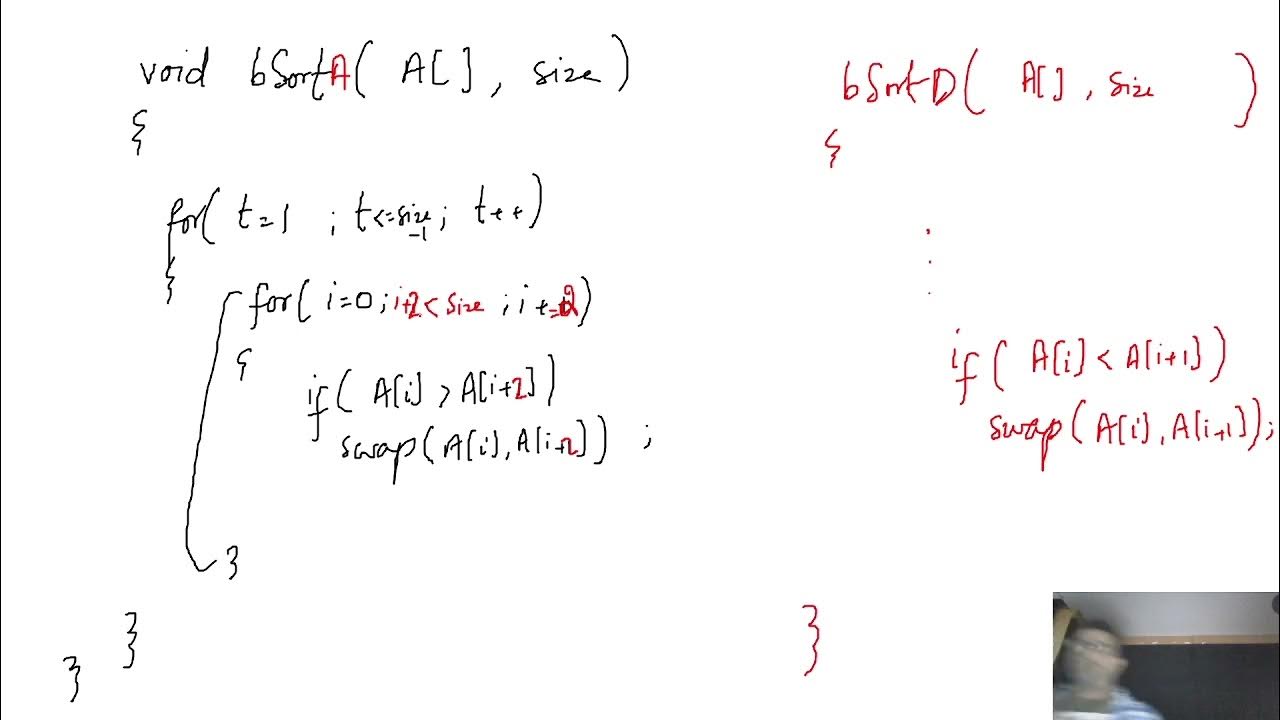 void bSortA( A[] , size )
{
for( t=1 ; t<=size-1 ; t++ )
{
for( i=0 ; i+2 < size ; i+=2 )
{
if( A[i] > A[i+2] )
swap( A[i], A[i+2] ) ;
}
}
}
bSortD( A[] , size )
{
.
.
.
if( A[i] < A[i+1] )
swap( A[i], A[i+1] );
}